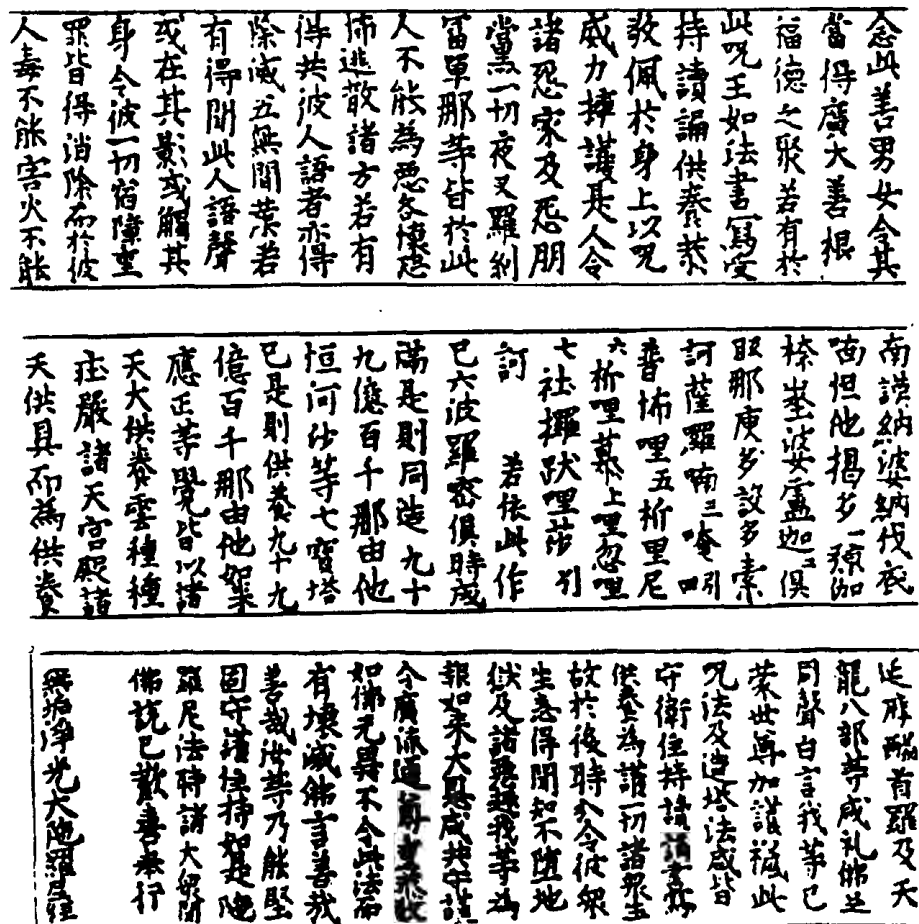 念此善男女令其
當得廣大善根
福德之聚若有於
此咒王如法書寫受
持讀誦供養恭
敬佩於身上以咒
威力擁護是人令
諸怨家及怨朋
黨一切夜叉羅刹
富單那等皆於此
人不能為惡各懷恐
怖逃散諸方若有
得共彼人語者亦得
除滅五無間業若
有得聞此人語聲
或在其影或觸其
身令彼一切宿障重
罪皆得消除而於彼
人毒不能害火不能
南謨納婆納伐底
喃怛他揭多
捺婆盧迦二俱
胝那庾多設多索
訶薩羅喃三唵引
普怖哩五折里尼
六折哩慕上哩忽哩
七社攞跋哩莎引
訶 若依此作
已六波羅蜜俱時成
滿是則同造九十
九億百千那由他
恒河沙等七寶塔
已是則供養九十九
億百千那由他如來
應正等覺皆以諸
天大供養雲種種
莊嚴諸天宮殿諸
天供具而為供養
延摩醯首羅及天
龍八部等咸礼佛足
同聲白言我等已
蒙世尊加護授此
咒法及造塔法咸皆
守衛住持讀誦書寫
供養為護一切諸眾生
故於後時分令彼眾
生悉得聞知不墮地
獄及諸惡趣我等為
報如來大恩咸共守護
令廣流通尊重恭敬
如佛無異不令此法而
有壞滅佛言善哉
善哉汝等乃能堅
固守護住持如是陀
羅尼法時諸大眾聞
佛說已歡喜奉行
無垢淨光大陀羅尼經